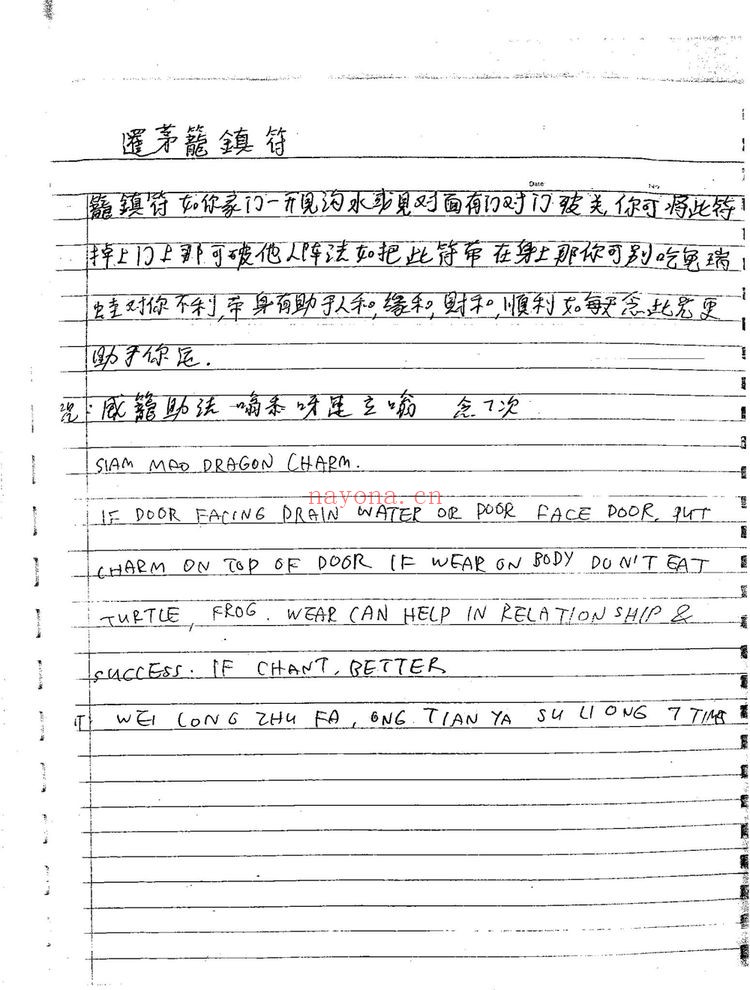 暹茅籠鎮符
Date
No
籠鎮符如你家门一开見沟水或見对面有门对门破关,你可将此符
掉上门上那可破他人阵法如把此符带在身上那你可别吃龟
蛙对你不利,带身有助于人和,缘和,財和,順利如每天念此咒更
助于你运.
咒: 威籠助法 念7次
SIAM MAO DRAGON CHARM.
nayona.cn
IF DOOR FACING DRAIN WATER OR DOOR FACE DOOR, PUT
CHARM ON TOP OF DOOR IF WEAR ON BODY DON'T EAT
TURTLE, FROG. WEAR CAN HELP IN RELATIONSHIP &
SUCCESS. IF CHANT, BETTER
WEI LONG ZHU FA, ONG TIAN YA SU LIONG 7 TIMES